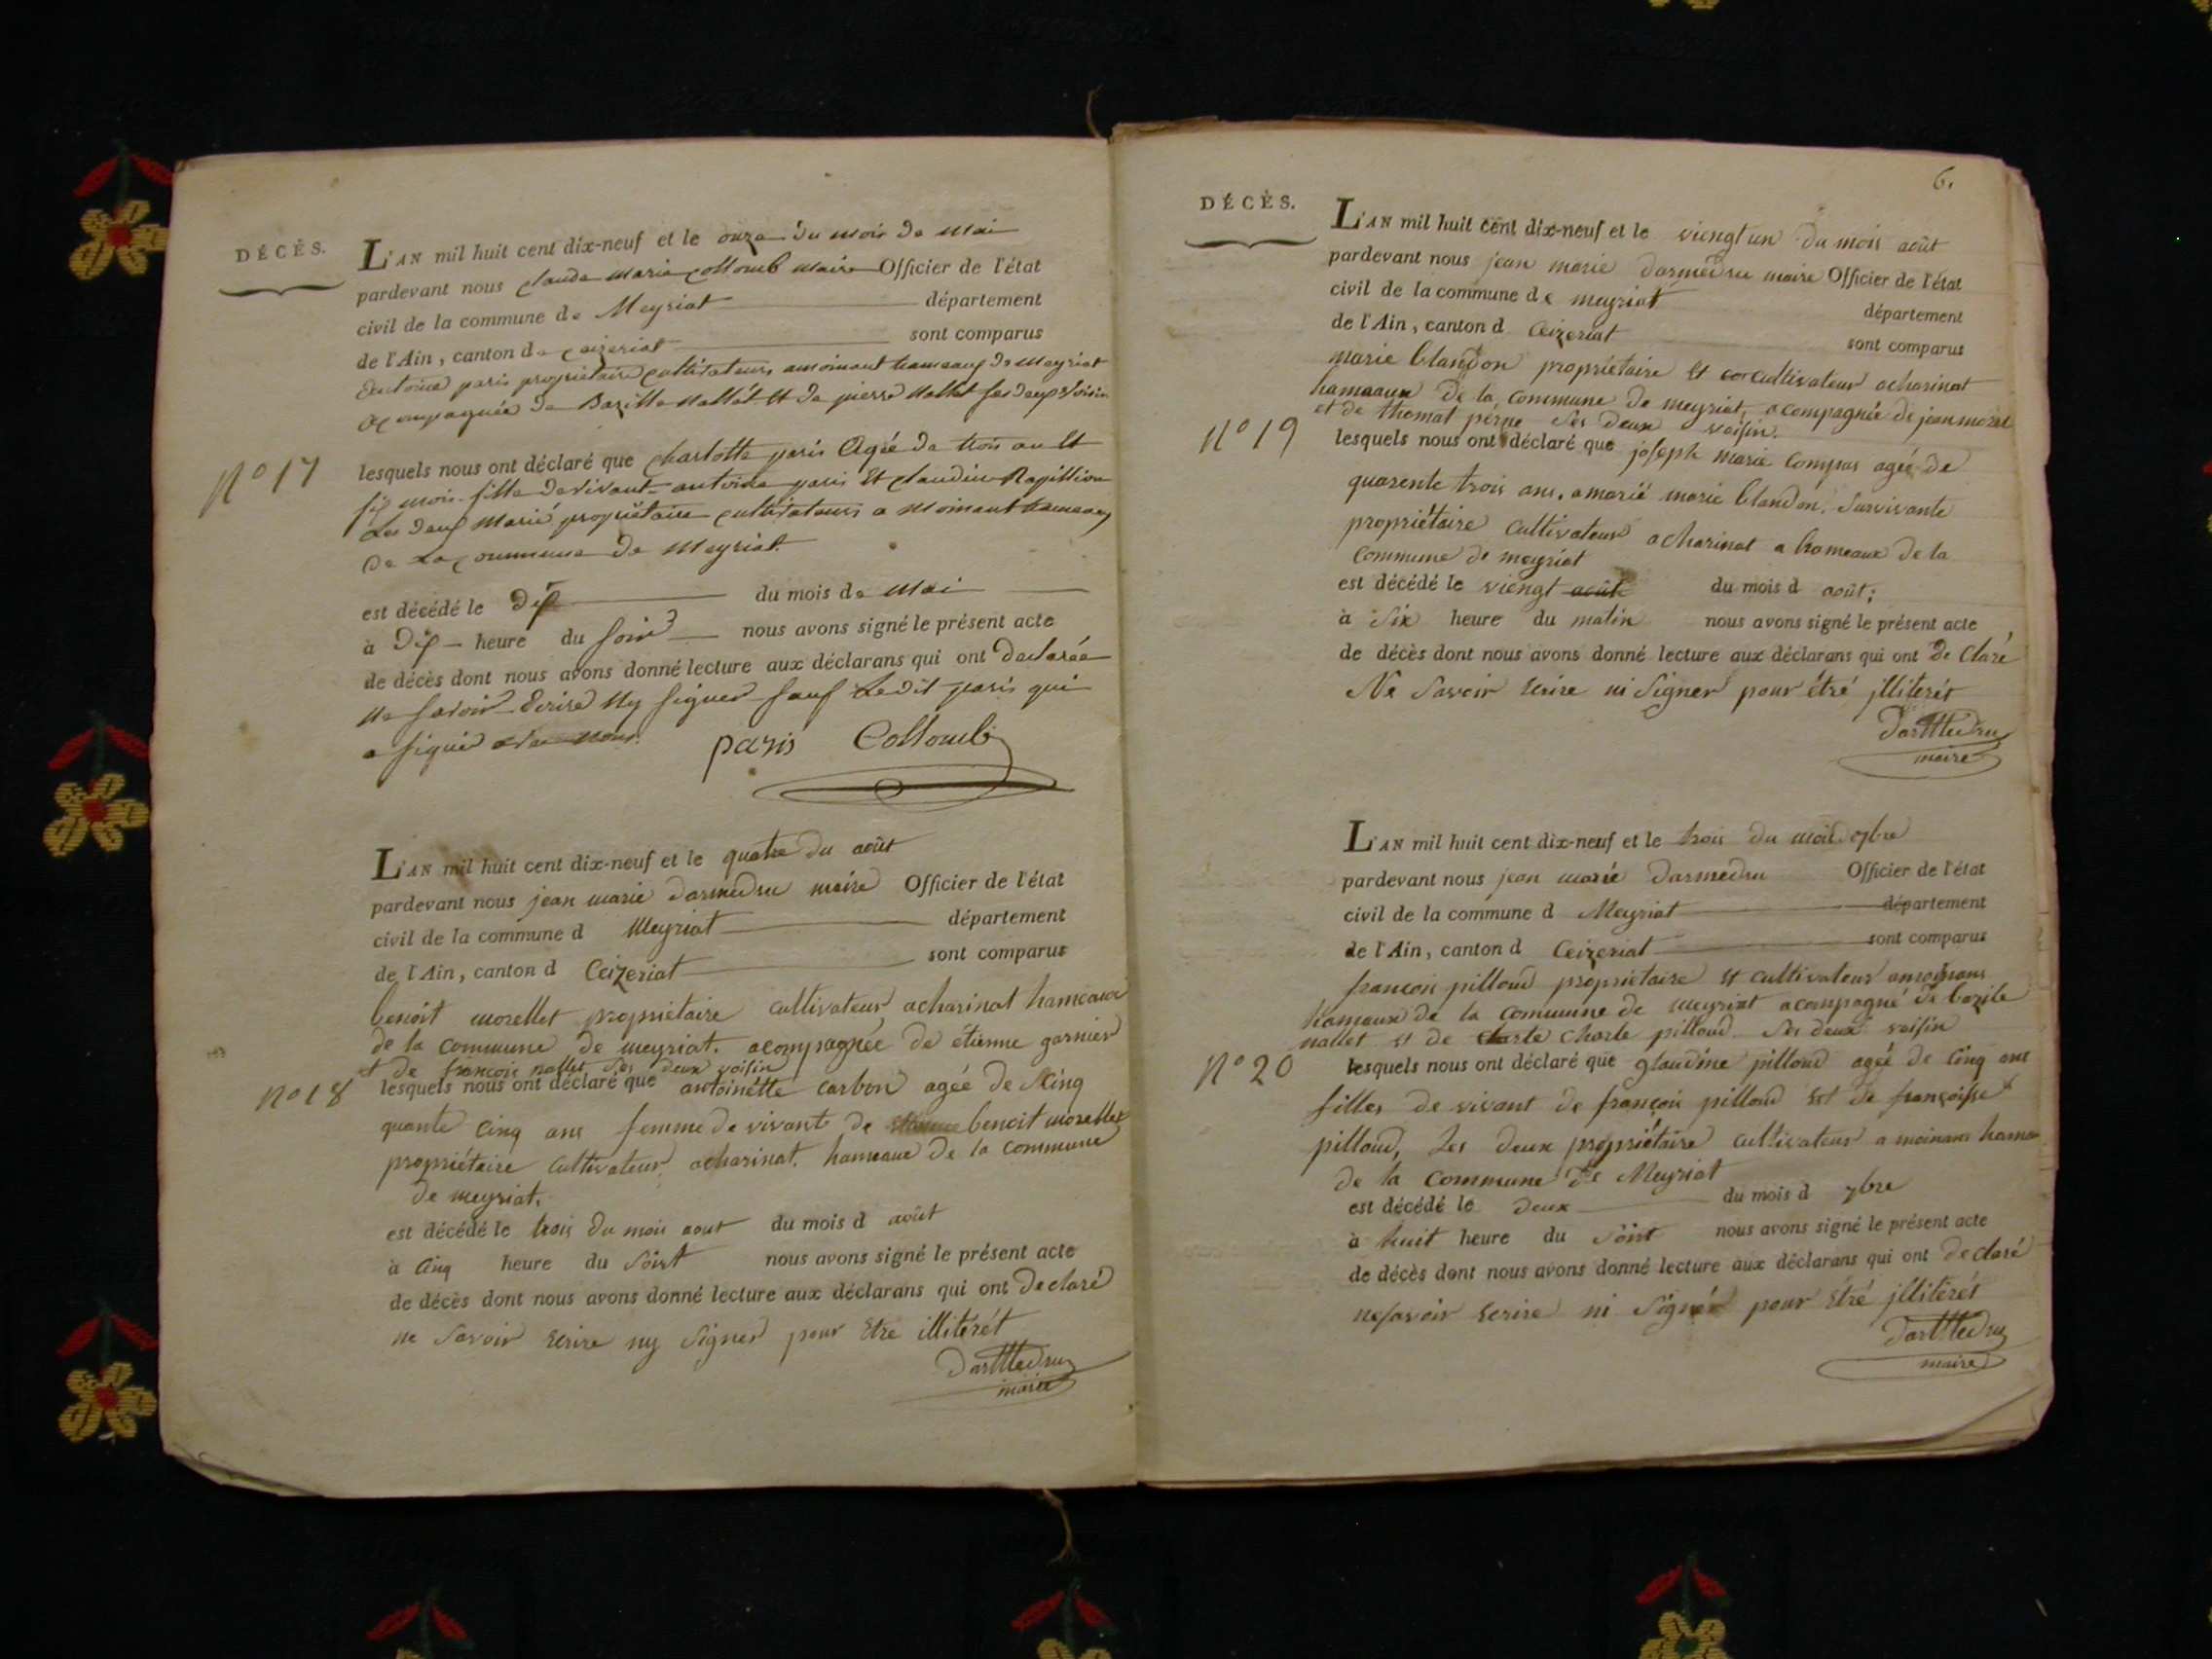 DÉCÈS.
L'AN mil huit cent dix-neuf et le onze du mois de mai
pardevant nous claude marie collomb maire Officier de l'état
civil de la commune de Meyriat département
de l'Ain, canton de ceizeriat sont comparus
antoine paris propriétaire cultivateurs amoinant hameaux de meyriat
acompagnée de Bazille nallét et de pierre nallet ses deux voisin
N° 17
lesquels nous ont déclaré que charlotte paris Agée de trois an Et
six mois fille de vivant antoine paris Et claudine Rapillion
Les deux marié propriétaire cultivateurs a moinant hameaux
de La commune de meyriat
est décédé le dix du mois de mai
à dix heure du soir nous avons signé le présent acte
de décès dont nous avons donné lecture aux déclarans qui ont declarée
ne savoir Ecrire ny signer sauf Ledit paris qui
a signé avec nous. paris Collomb
L'AN mil huit cent dix-neuf et le quatre du août
pardevant nous jean marie darmedru maire Officier de l'état
civil de la commune d Meyriat département
de l'Ain, canton d Ceizeriat sont comparus
benoit morellet propriétaire cultivateur acharinat hameaux
de la commune de meyriat. acompagnée de étienne garnier
et de françois nallet ses deux voisin
N° 18
lesquels nous ont déclaré que antoinétte carbon agée de Cinq
quante cinq ans femme de vivant de benoit morellet
propriétaire cultivateur acharinat. hameaux de la commune
de meyriat.
est décédé le trois du mois aout du mois d août
à cinq heure du soirt nous avons signé le présent acte
de décès dont nous avons donné lecture aux déclarans qui ont declaré
ne savoir ecrire ny signer pour Etre illitérét
darmedru
maire
6.
DÉCÈS.
L'AN mil huit cent dix-neuf et le viengt un du mois août
pardevant nous jean marie darmedru maire Officier de l'état
civil de la commune de meyriat département
de l'Ain, canton d Ceizeriat sont comparus
marie blandon propriétaire et cultivateur acharinat
hameaux de la commune de meyriat, acompagnée de jean morel
et de thomat perne ses deux voisin.
N° 19
lesquels nous ont déclaré que joseph marie compas agée de
quarente trois ans. a marié marie blandon. survivante
propriétaire cultivateur acharinat a hameaux de la
commune de meyriat
est décédé le viengt août du mois d août;
à six heure du matin nous avons signé le présent acte
de décès dont nous avons donné lecture aux déclarans qui ont de claré
Ne savoir ecrire ni signer pour étré jlliterét
darmedru
maire
L'AN mil huit cent dix-neuf et le trois du mois 7bre
pardevant nous jean marie darmedru Officier de l'état
civil de la commune d Meyriat département
de l'Ain, canton d Ceizeriat sont comparus
françois pilloud propriétaire et cultivateur amoinans
hameaux de la commune de meyriat acompagné de bazile
nallet et de charle pilloud ses deux voisin
N° 20
lesquels nous ont déclaré que glaudine pilloud agée de cinq ans
filles de vivant de françois pilloud et de françoisse
pilloud, Les deux propriétaire cultivateur a moinans hameau
de la commune de Meyriat
est décédé le deux du mois d 7bre
à huit heure du soirt nous avons signé le présent acte
de décès dont nous avons donné lecture aux déclarans qui ont declaré
ne savoir ecrire ni signér pour étré jllitérét
darmedru
maire